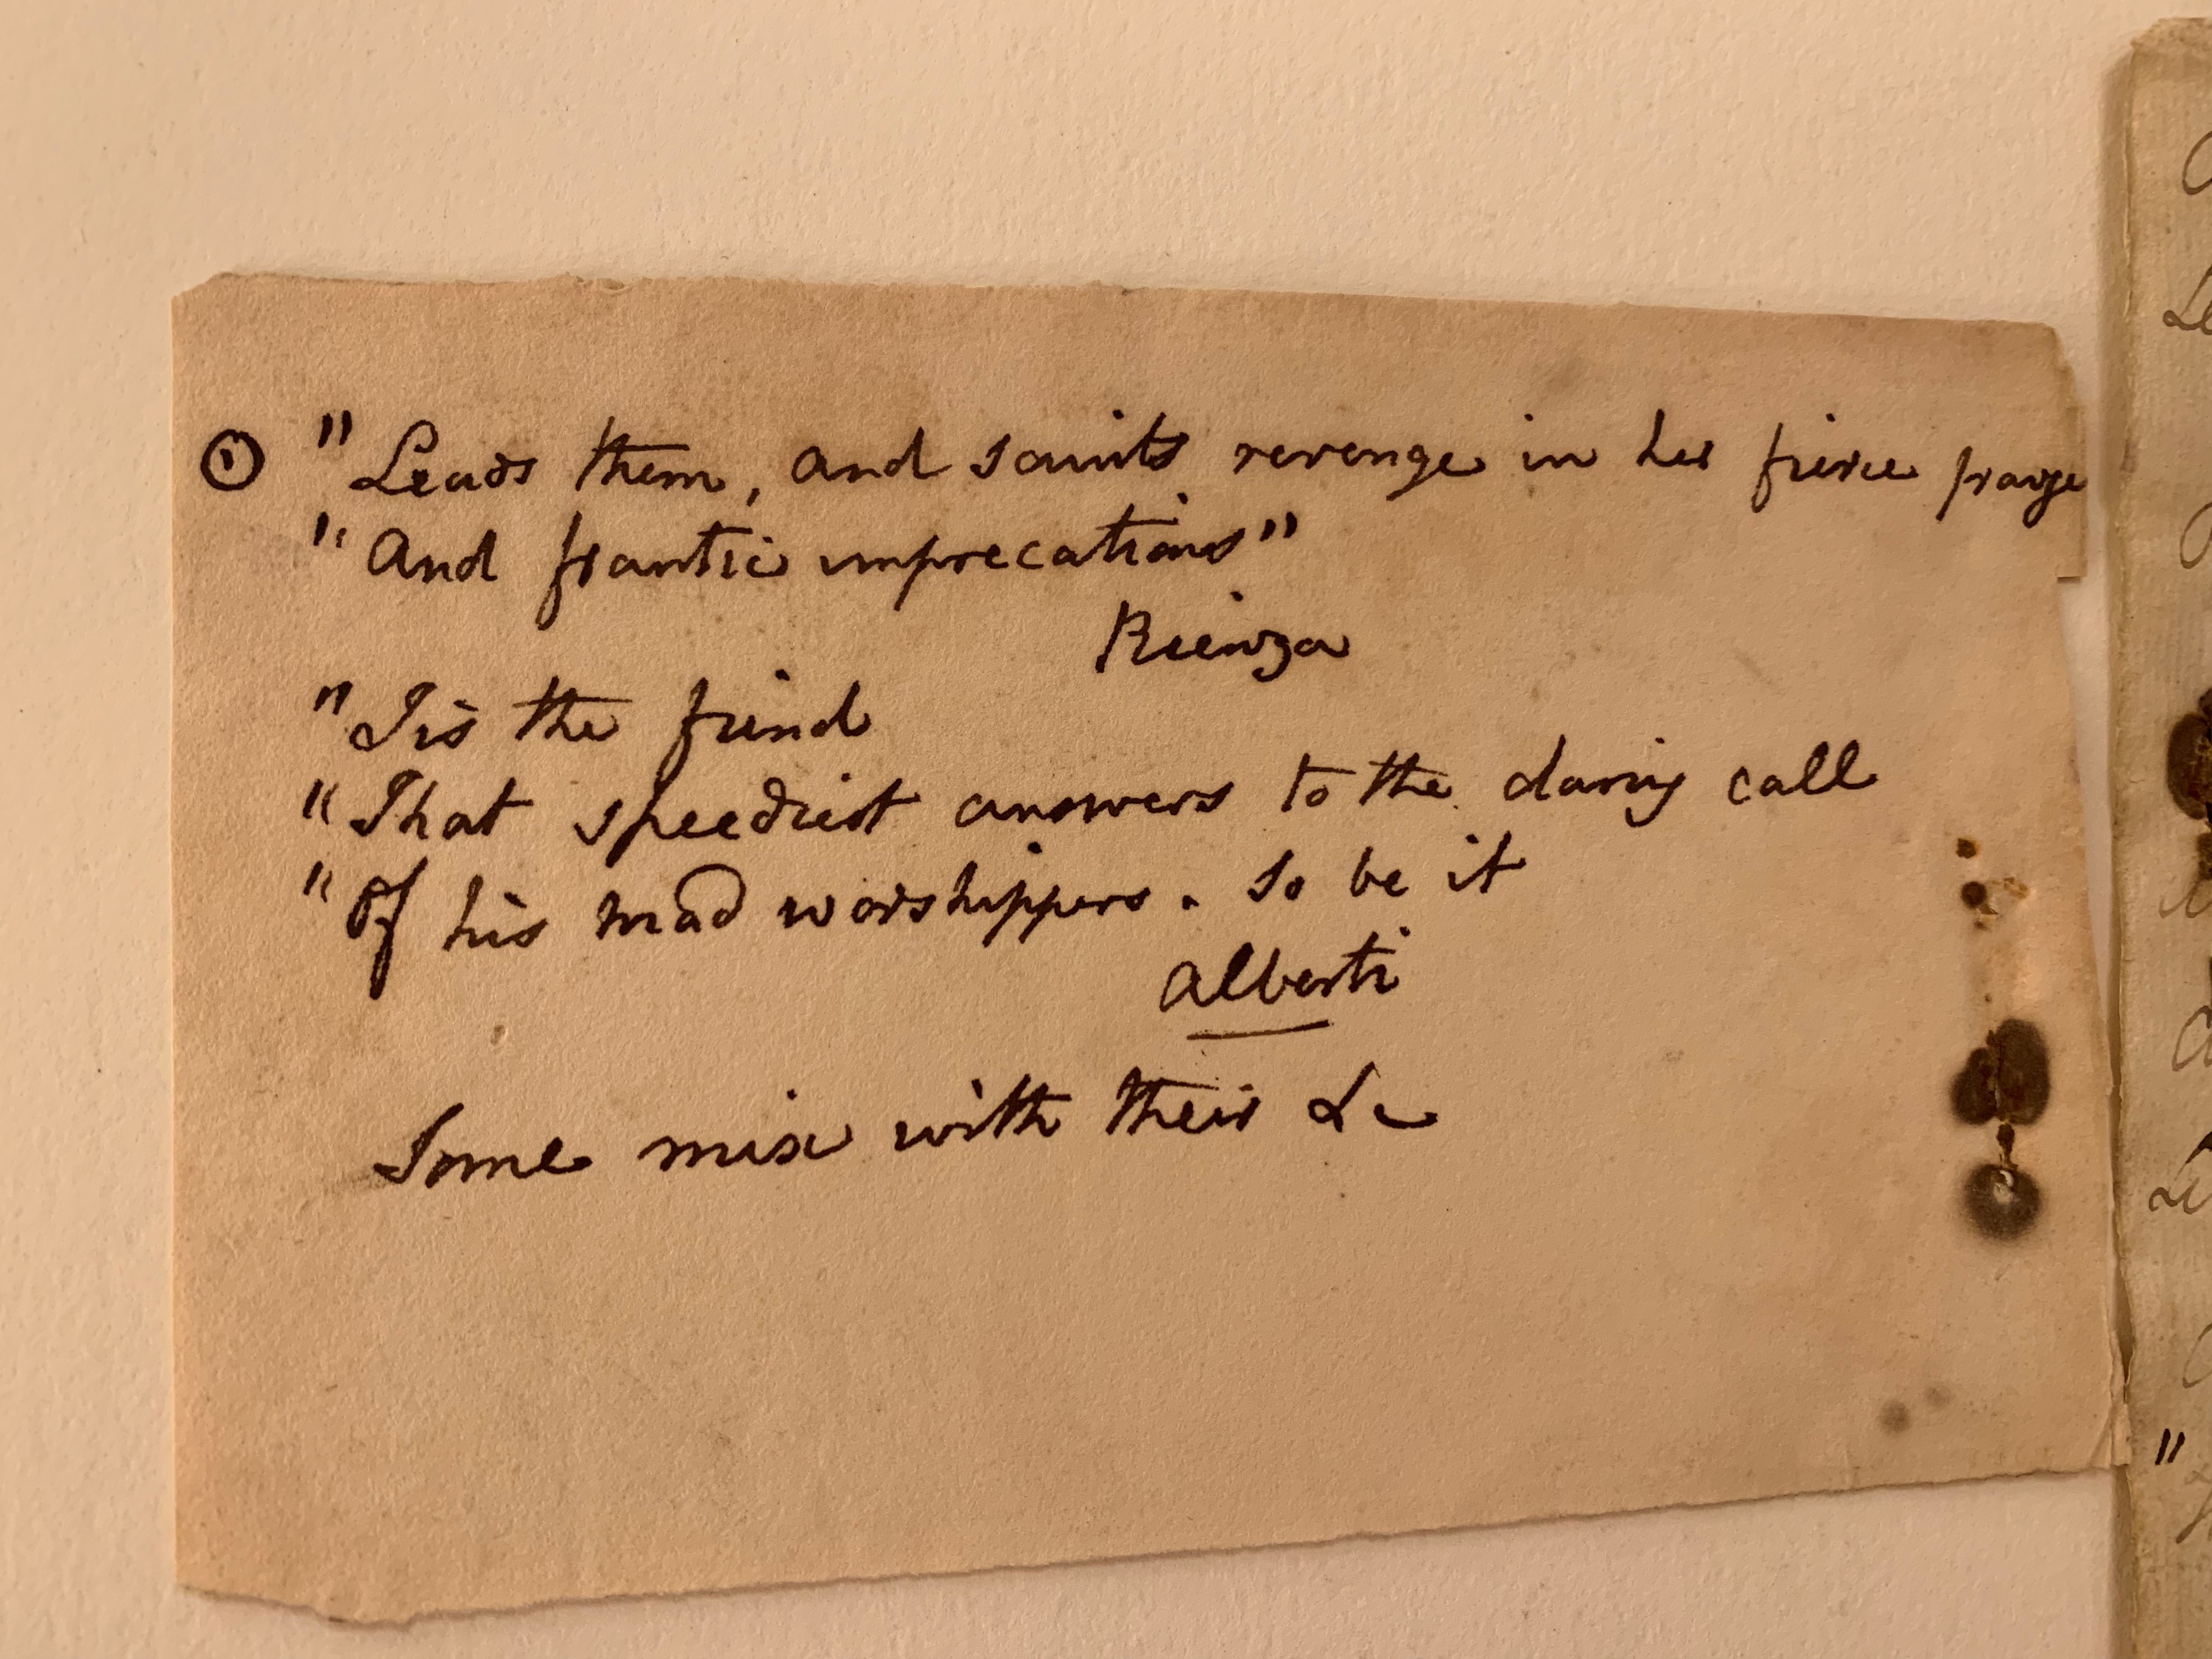 ① "Leads them, and saints revenge in her fierce praye
"And frantic imprecations"
Rienza
"Tis the fiend
"That speediest answers to the daring call
"Of his mad worshippers. So be it
Alberti
Some mix with their &c